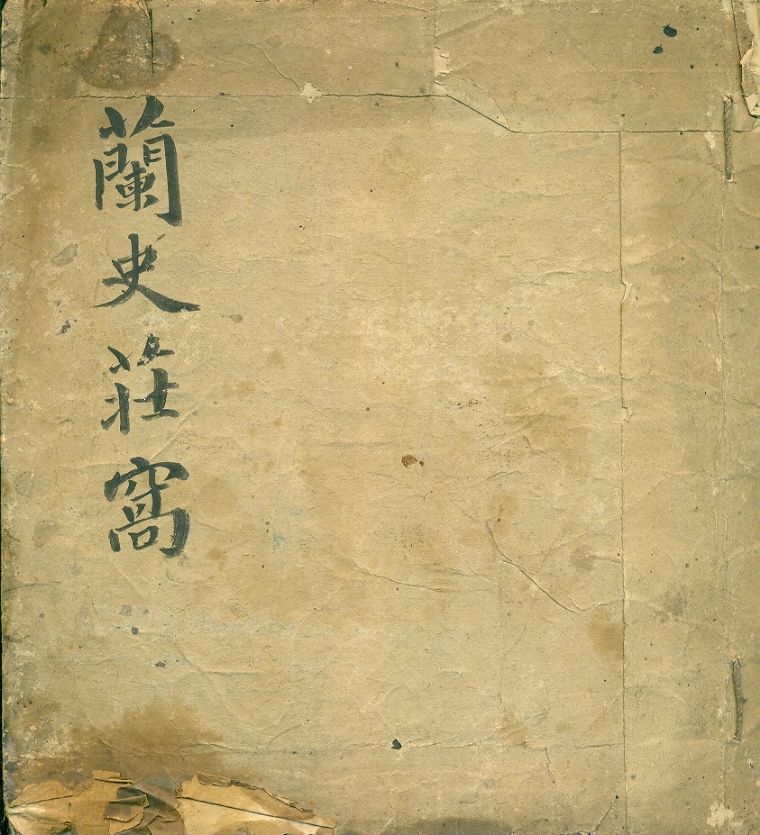 蘭史莊窩